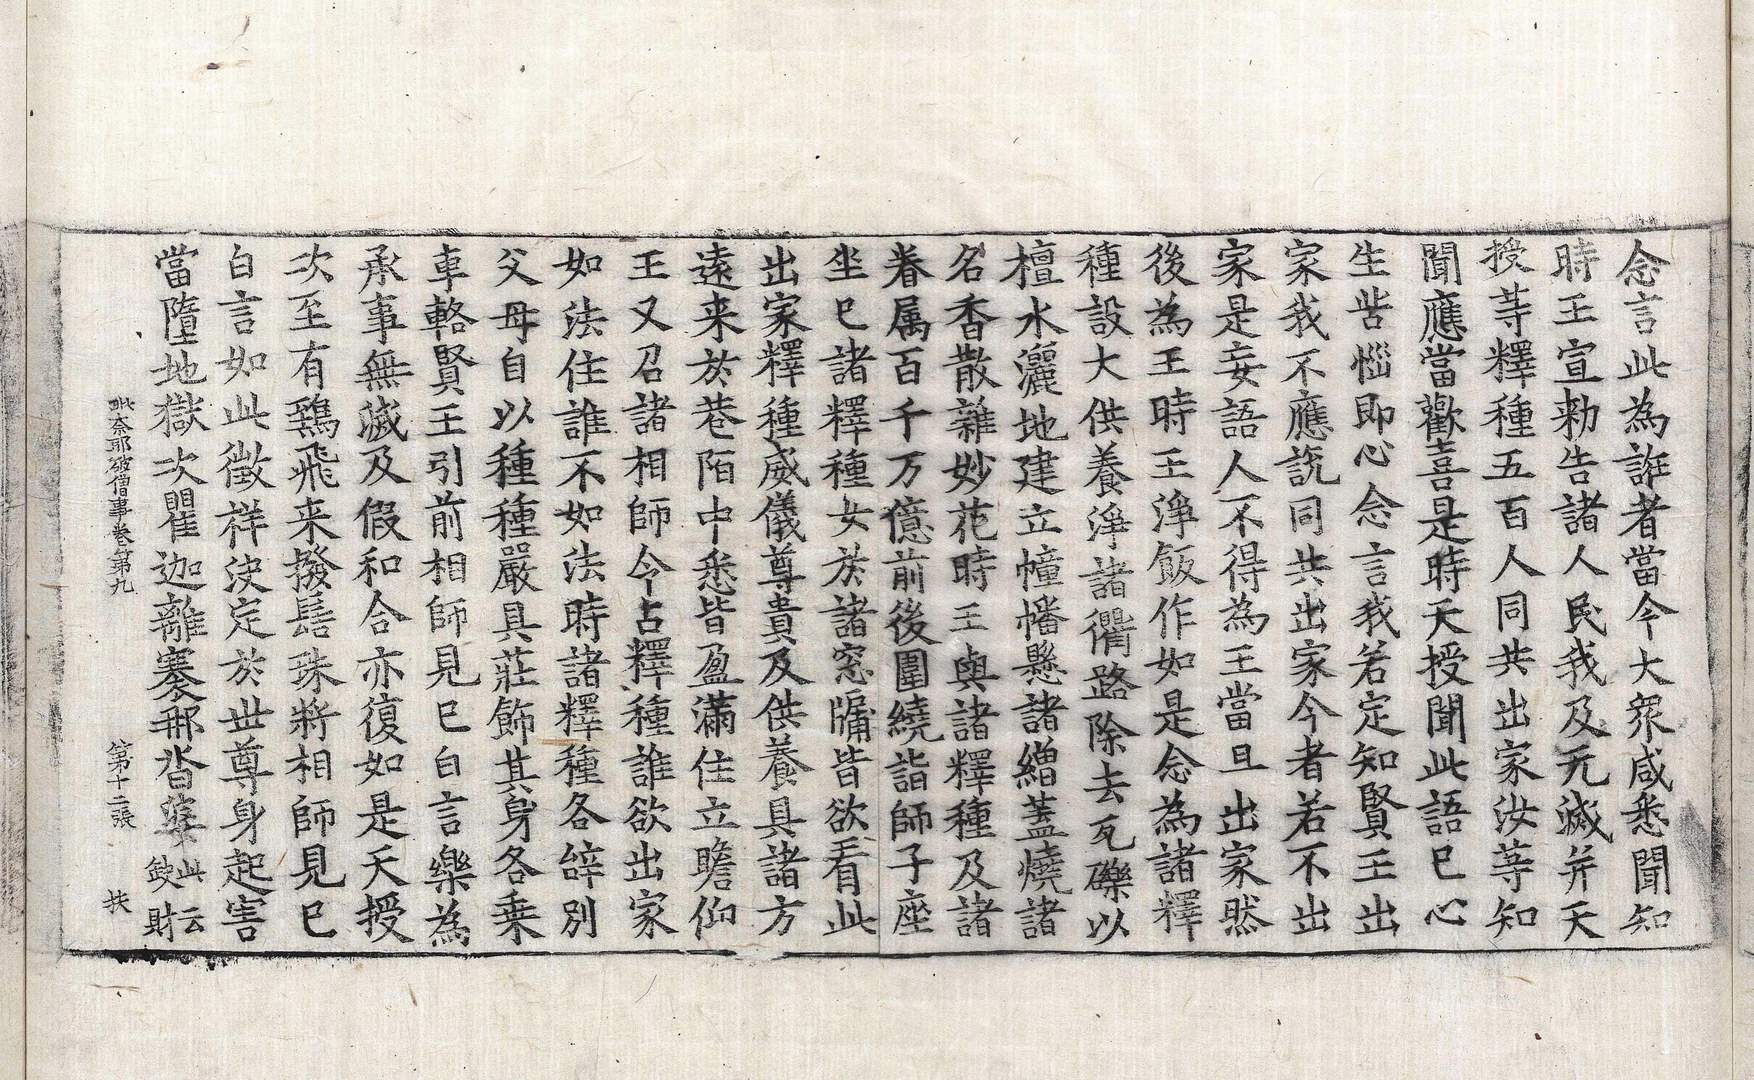 念言此為誑者當今大衆咸悉聞知
時王宣勑告諸人民我及无滅并天
授䓁釋種五百人同共出家汝䓁知
聞應當歡喜是時天授聞此語已心
生苦惱即心念言我若定知賢王出
家我不應說同共出家今者若不出
家是妄語人不得為王當且出家然
後為王時王淨飯作如是念為諸釋
種設大供養淨諸衢路除去瓦礫以
檀水灑地建立幢幡懸諸繒蓋燒諸
名香散雜妙花時王與諸釋種及諸
眷属百千万億前後圍繞詣師子座
坐已諸釋種女於諸窓牖皆欲看此
出家釋種威儀尊貴及供養具諸方
遠来於巷陌中悉皆盈滿住立瞻仰
王又召諸相師令占釋種誰欲出家
如法住誰不如法時諸釋種各辞別
父母自以種種嚴具莊飾其身各乗
車輅賢王引前相師見已白言樂為
承事無滅及假和合亦復如是天授
次至有鵄飛来撥髻珠將相師見已
白言如此徵祥決定於世尊身起害
當墮地獄次瞿迦離騫䣓沓婆此云缺財
毗奈耶破僧事卷第九 第十二張 扶